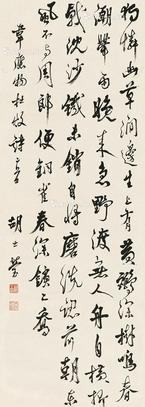 独憐幽草澗邊生上有黃鸝深樹鳴春
潮帶雨晚來急野渡無人舟自橫折
戟沈沙鐵未銷自將磨洗認前朝東
風不与周郎便銅雀春深鎖二喬
韋應物杜牧詩二首
胡士瑩